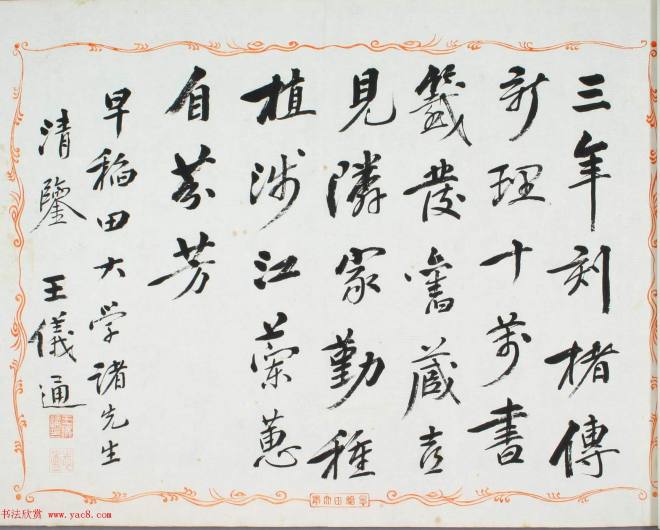 三年刻楮傳
新理十萬書
籤發舊藏喜
見隣家勤種
植涉江蘭蕙
自芬芳
早稻田大学諸先生
清鑒
王儀通
书法欣赏 www.yac8.com